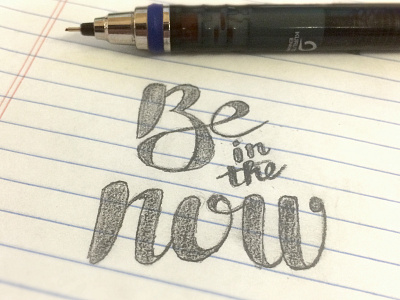 Be
in
the
now